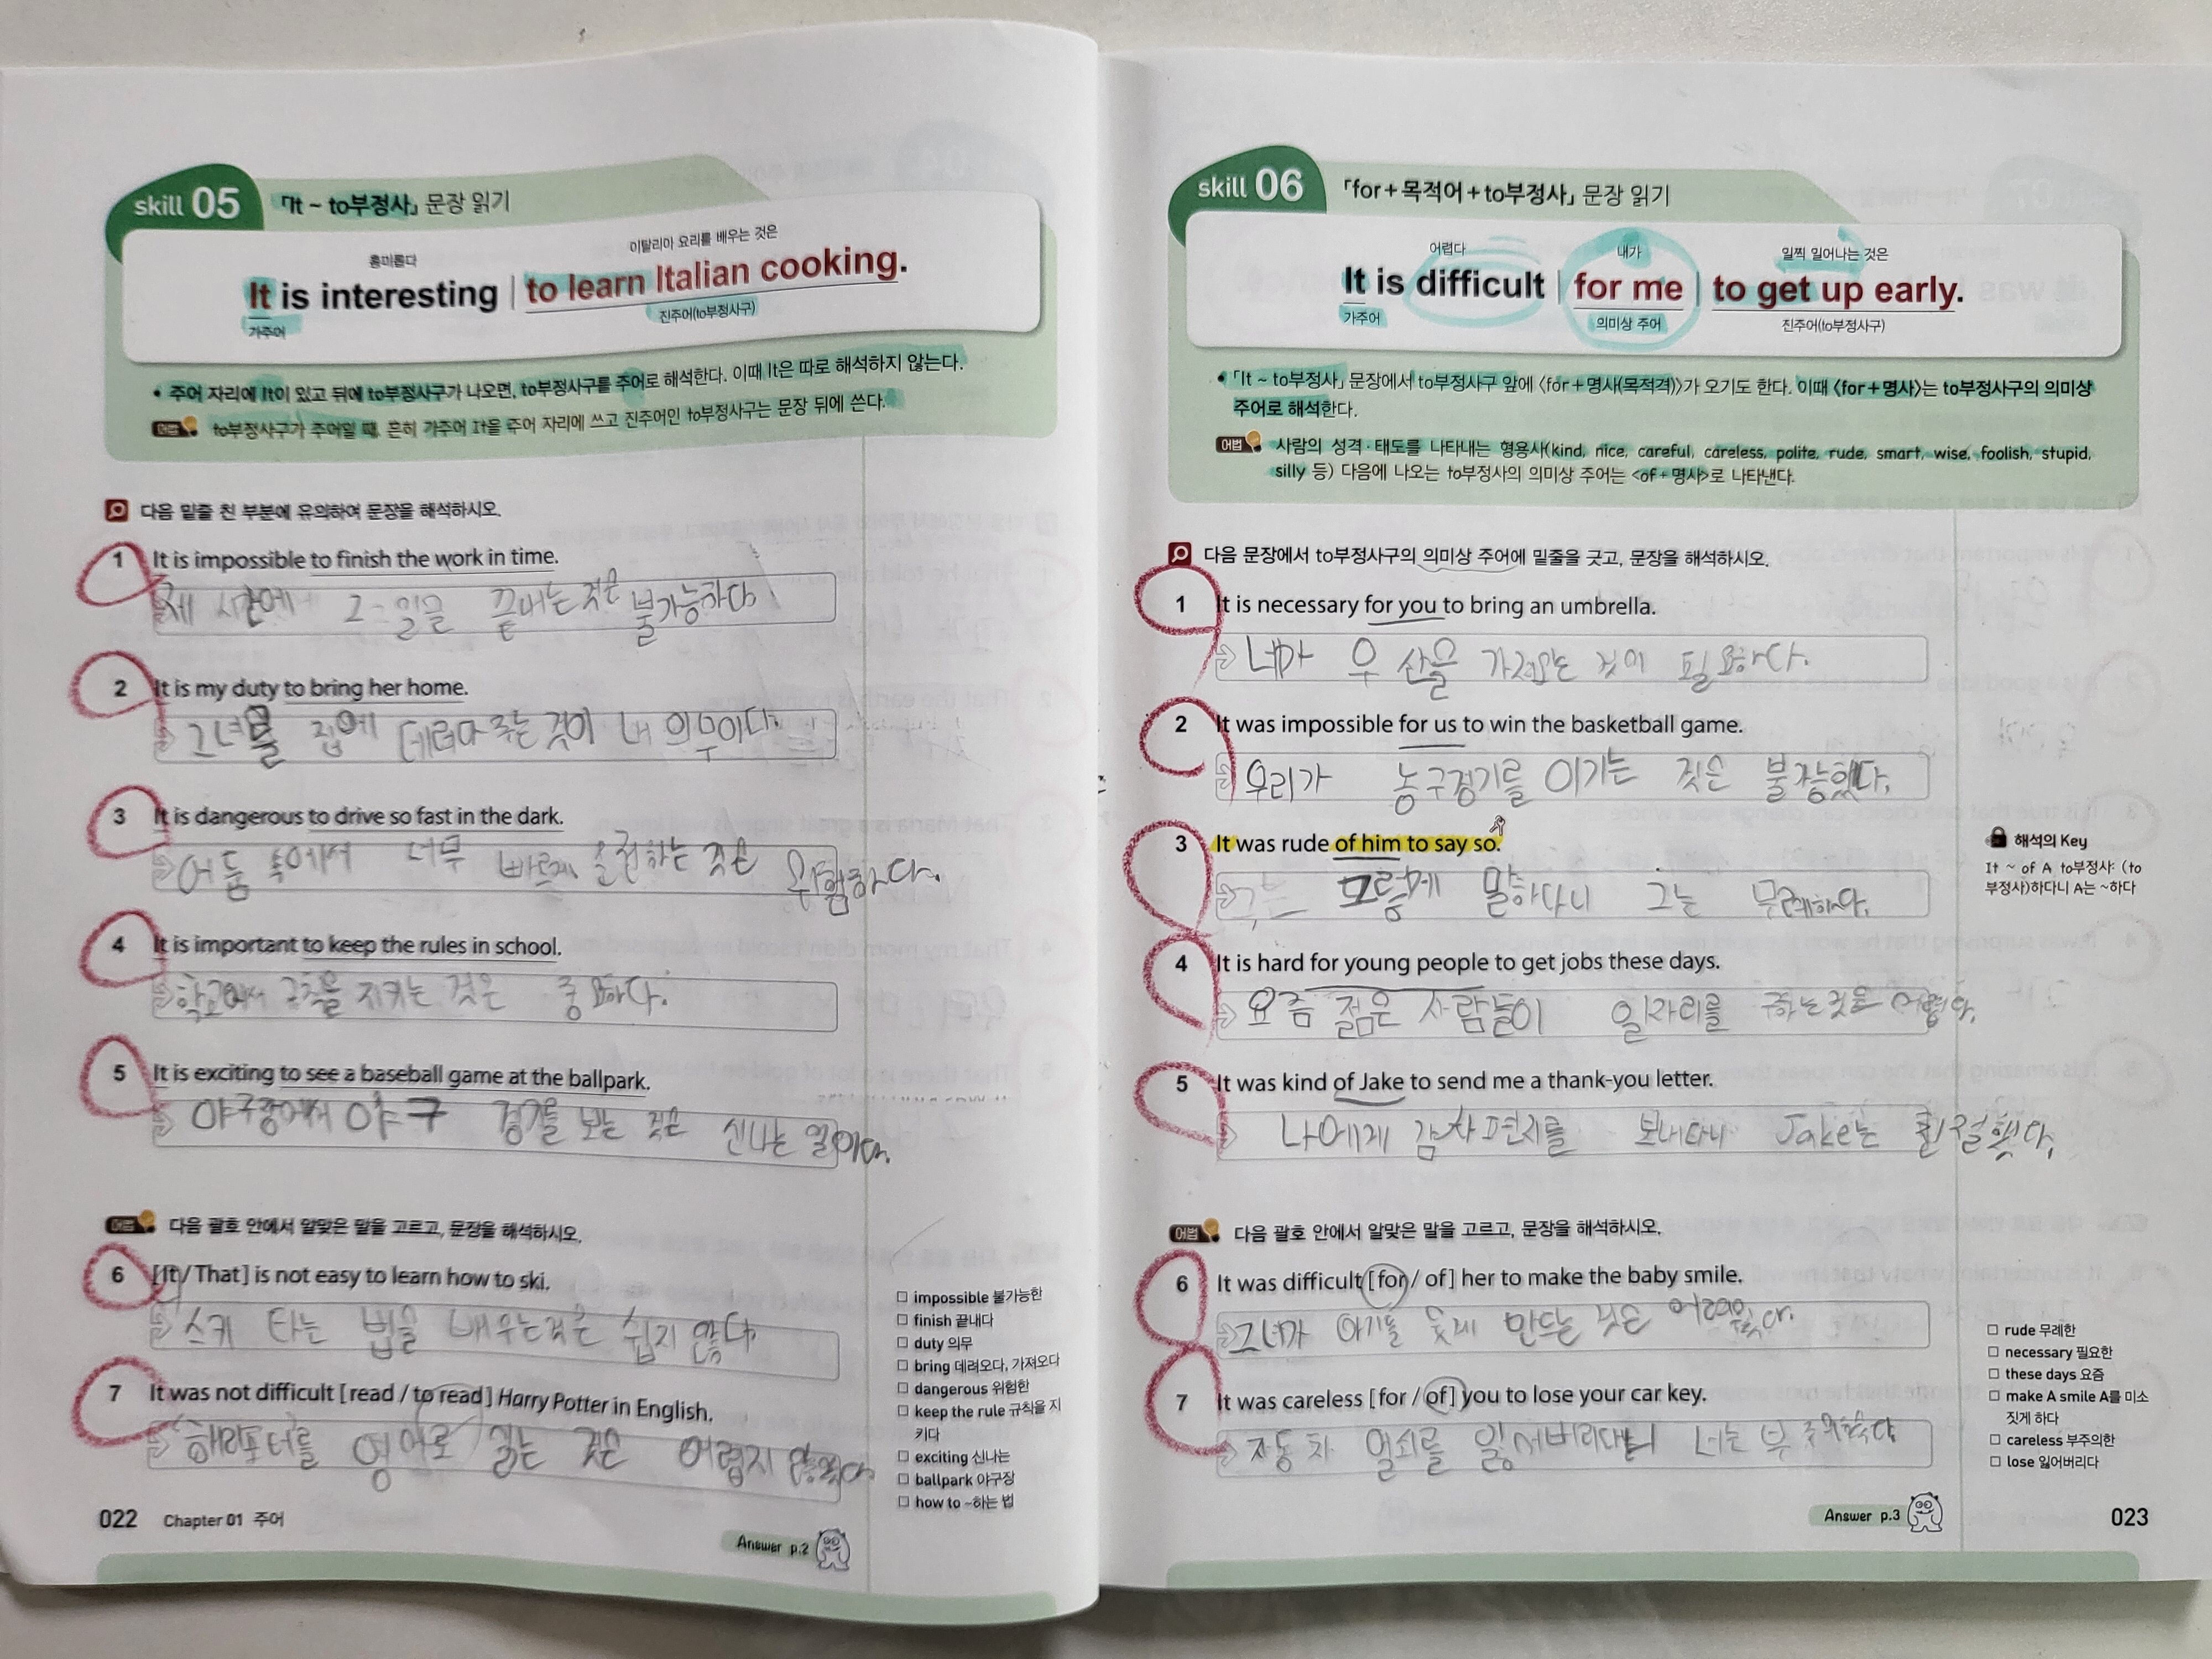 skill 05 「It ~ to부정사」 문장 읽기
흥미롭다 이탈리아 요리를 배우는 것은
It is interesting | to learn Italian cooking.
가주어 진주어(to부정사구)
• 주어 자리에 It이 있고 뒤에 to부정사구가 나오면, to부정사구를 주어로 해석한다. 이때 It은 따로 해석하지 않는다.
어법 to부정사구가 주어일 때, 흔히 가주어 It을 주어 자리에 쓰고 진주어인 to부정사구는 문장 뒤에 쓴다.
다음 밑줄 친 부분에 유의하여 문장을 해석하시오.
1 It is impossible to finish the work in time.
제 시간에 그 일을 끝내는 것은 불가능하다
2 It is my duty to bring her home.
그녀를 집에 데려다 주는 것이 내 의무이다.
3 It is dangerous to drive so fast in the dark.
어둠 속에서 너무 빠르게 운전하는 것은 위험하다.
4 It is important to keep the rules in school.
학교에서 규칙을 지키는 것은 중요하다.
5 It is exciting to see a baseball game at the ballpark.
야구장에서 야구 경기를 보는 것은 신나는 일이다.
어법 다음 괄호 안에서 알맞은 말을 고르고, 문장을 해석하시오.
6 [It / That] is not easy to learn how to ski.
스키 타는 법을 배우는것은 쉽지 않다
7 It was not difficult [read / to read] Harry Potter in English.
해리포터를 영어로 읽는 것은 어렵지 않았다
□ impossible 불가능한
□ finish 끝내다
□ duty 의무
□ bring 데려오다, 가져오다
□ dangerous 위험한
□ keep the rule 규칙을 지
키다
□ exciting 신나는
□ ballpark 야구장
□ how to ~하는 법
022 Chapter 01 주어
Answer p.2
skill 06 「for+목적어+to부정사」 문장 읽기
어렵다 내가 일찍 일어나는 것은
It is difficult | for me | to get up early.
가주어 의미상 주어 진주어(to부정사구)
• 「It ~ to부정사」 문장에서 to부정사구 앞에 〈for+명사(목적격)〉가 오기도 한다. 이때 〈for+명사〉는 to부정사구의 의미상
주어로 해석한다.
어법 사람의 성격·태도를 나타내는 형용사(kind, nice, careful, careless, polite, rude, smart, wise, foolish, stupid,
silly 등) 다음에 나오는 to부정사의 의미상 주어는 <of+명사>로 나타낸다.
다음 문장에서 to부정사구의 의미상 주어에 밑줄을 긋고, 문장을 해석하시오.
1 It is necessary for you to bring an umbrella.
네가 우산을 가져오는 것이 필요하다.
2 It was impossible for us to win the basketball game.
우리가 농구경기를 이기는 것은 불가능했다.
3 It was rude of him to say so.
그렇게 말하다니 그는 무례하다.
4 It is hard for young people to get jobs these days.
요즘 젊은 사람들이 일자리를 구하는것은 어렵다.
5 It was kind of Jake to send me a thank-you letter.
나에게 감사편지를 보내다니 Jake는 친절했다.
어법 다음 괄호 안에서 알맞은 말을 고르고, 문장을 해석하시오.
6 It was difficult [for / of] her to make the baby smile.
그녀가 아기를 웃게 만드는 것은 어려웠다.
7 It was careless [for / of] you to lose your car key.
자동차 열쇠를 잃어버리다니 너는 부주의했다
해석의 Key
It ~ of A to부정사: (to
부정사)하다니 A는 ~하다
□ rude 무례한
□ necessary 필요한
□ these days 요즘
□ make A smile A를 미소
짓게 하다
□ careless 부주의한
□ lose 잃어버리다
Answer p.3
023